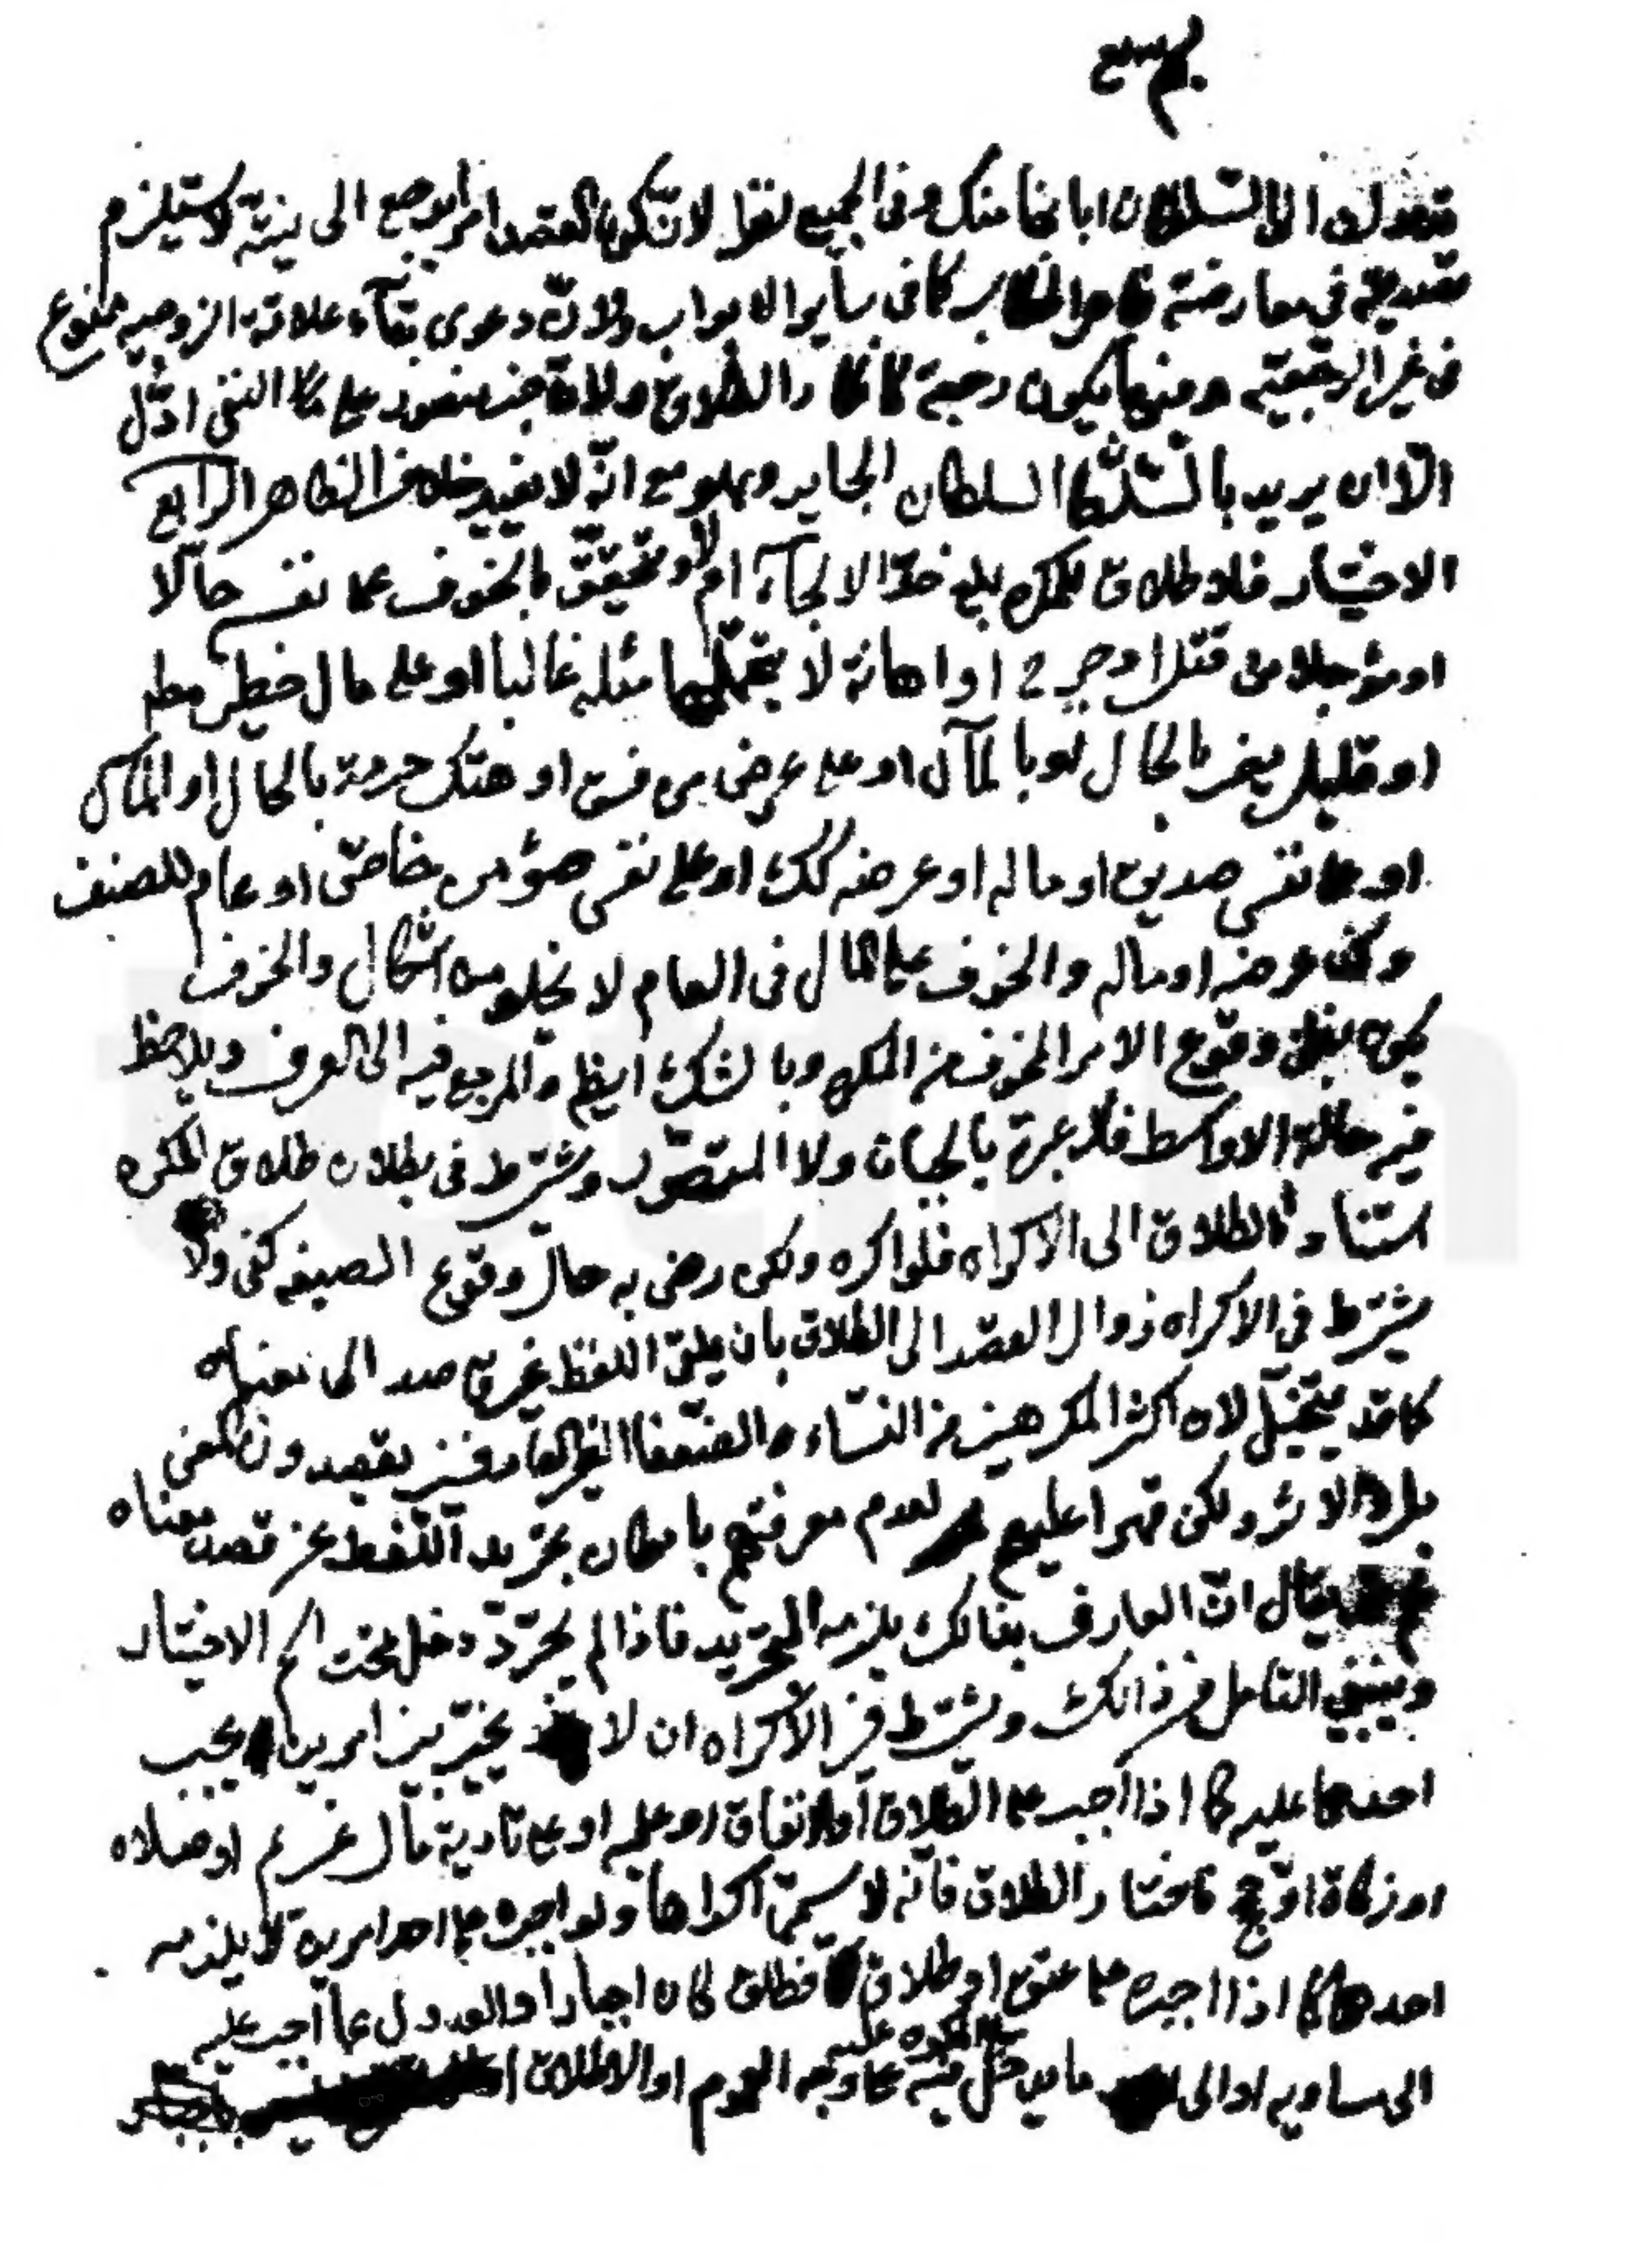 وفي الجميع نظر لان كون القصد امرا يرجع الى نيته لا يستلزم
تصديقه في معارضة ظاهر كما في ساير الابواب ولان دعوى بقاء علاقة الزوجية ممنوع
في غير الرجعية وفيها يكون رجعة كانكار الطلاق ولان
الا ان يريد السلطان الجاير وهو مع انه لا يفيد خلاف الظاهر الرابع
الاختيار فلا طلاق للمكره بلغ حد الالجاء ام لا وتحقق بالخوف على نفس حالا
او مؤجلا من قتل او جرح او اهانة لا يتحملها مثله غالبا او على مال خطير مطلقا
او قليل مضر بالحال او بالمآل او على عرض من فسق او هتك حرمة بالحال او المآل
او على نفس صديق او ماله او عرضه كذلك او على نفس مؤمن خاص او عام للصنف
وكف عرضه او ماله والخوف على المال في العام لا يخلو من اشكال والخوف
يكون بظن وقوع الامر المخوف من المكره وبالشك ايضا والمرجع فيه الى العرف ويلاحظ
فيه حالة الاواسط فلا عبرة بالجبان ولا المتهور ويشترط في بطلان طلاق المكره
استناد الطلاق الى الاكراه فلو اكره ولكن رضى به حال وقوع الصيغه كفى ولا
يشترط في الاكراه زوال القصد الى الطلاق بان يطلق اللفظ غير قاصد الى معناه
كما قد يتخيل لان اكثر المكرهين من النساء والضعفا الغير العارفين يقصدون المعنى
بل والاثر ولكن قهرا عليهم لعدم معرفتهم بامكان تجريد اللفظ عن قصد معناه
يقال ان العارف بذلك يلزمه التجريد فاذا لم يجرد دخل تحت اسم الاختيار
وينبغي التامل في ذلك ويشترط في الاكراه ان لا يخير بين امرين يجب
احدهما عليه كما اذا اجبر على الطلاق او الانفاق او على تادية مال غريم او صلاه
او زكاة او حج فاختار الطلاق فانه لا يسمى اكراها ولو اجبره على احد امرين لا يلزمه
احدهما كما اذا اجبره على عتق او طلاق فطلق كان اجبارا والعدول عما اجبر عليه
الى مساويه او الى ما يدخل فيه المكره عليه على وجه العموم او الاطلاق